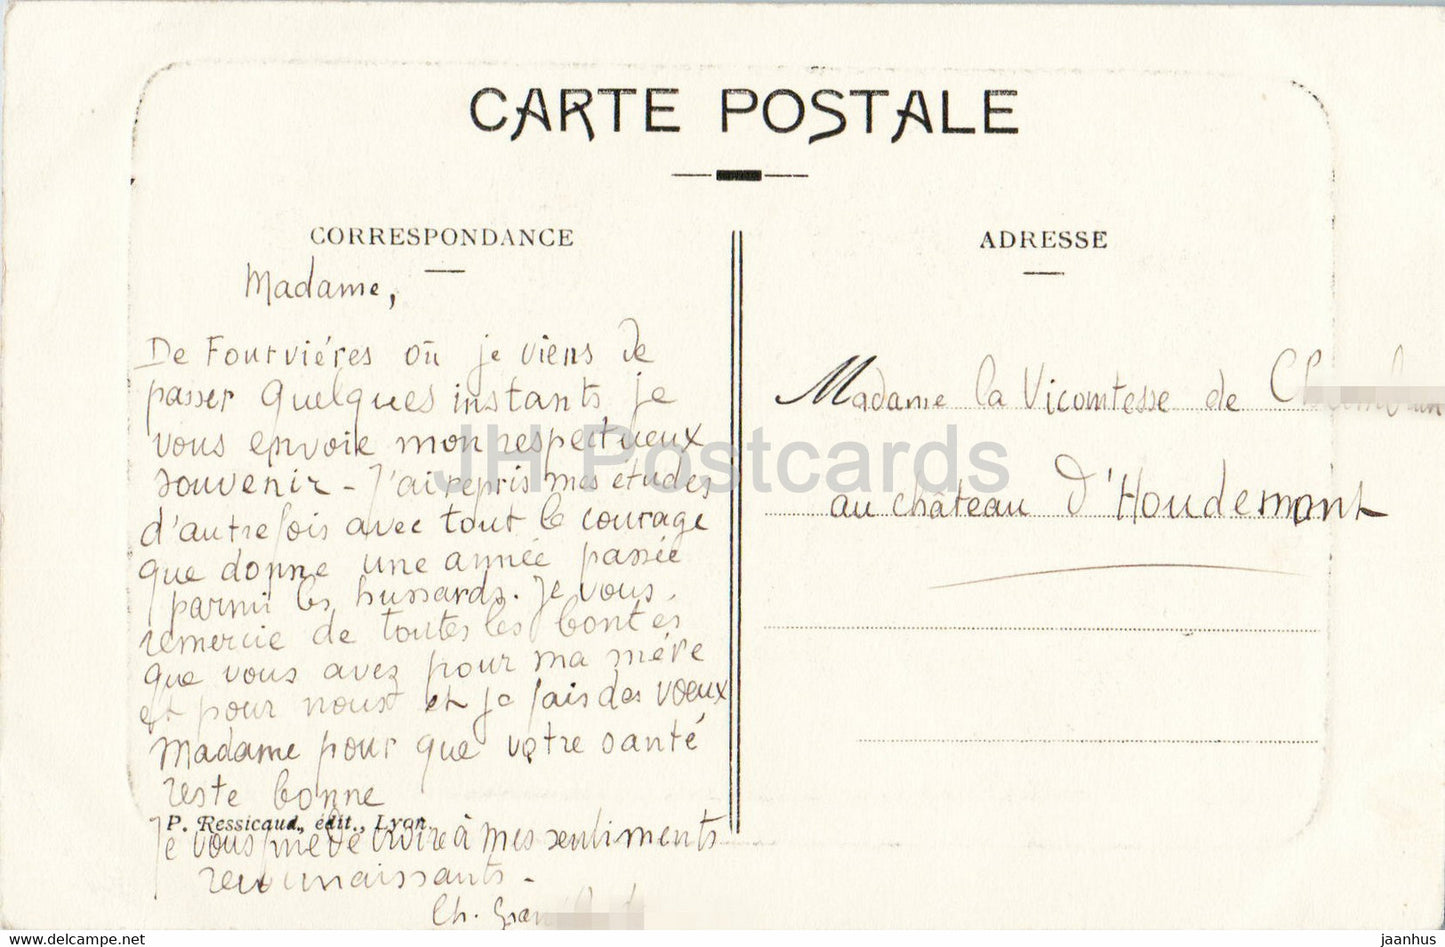 CARTE POSTALE
CORRESPONDANCE
Madame,
De Fourviéres où je viens de
passer quelques instants je
vous envoie mon respectueux
souvenir - J'ai repris mes études
d'autrefois avec tout le courage
que donne une année passée
parmi les hussards. Je vous
remercie de toutes les bontés
que vous avez pour ma mére
et pour nous et je fais des voeux
Madame pour que votre santé
reste bonne
P. Ressicaud, édit., Lyon.
Je vous de croire à mes sentiments
reconnaissants -
Ch.
ADRESSE
Madame la Vicomtesse de
au château d'Houdemont
JH Postcards
hippostcard.com/store/jaanhus
jaanhus